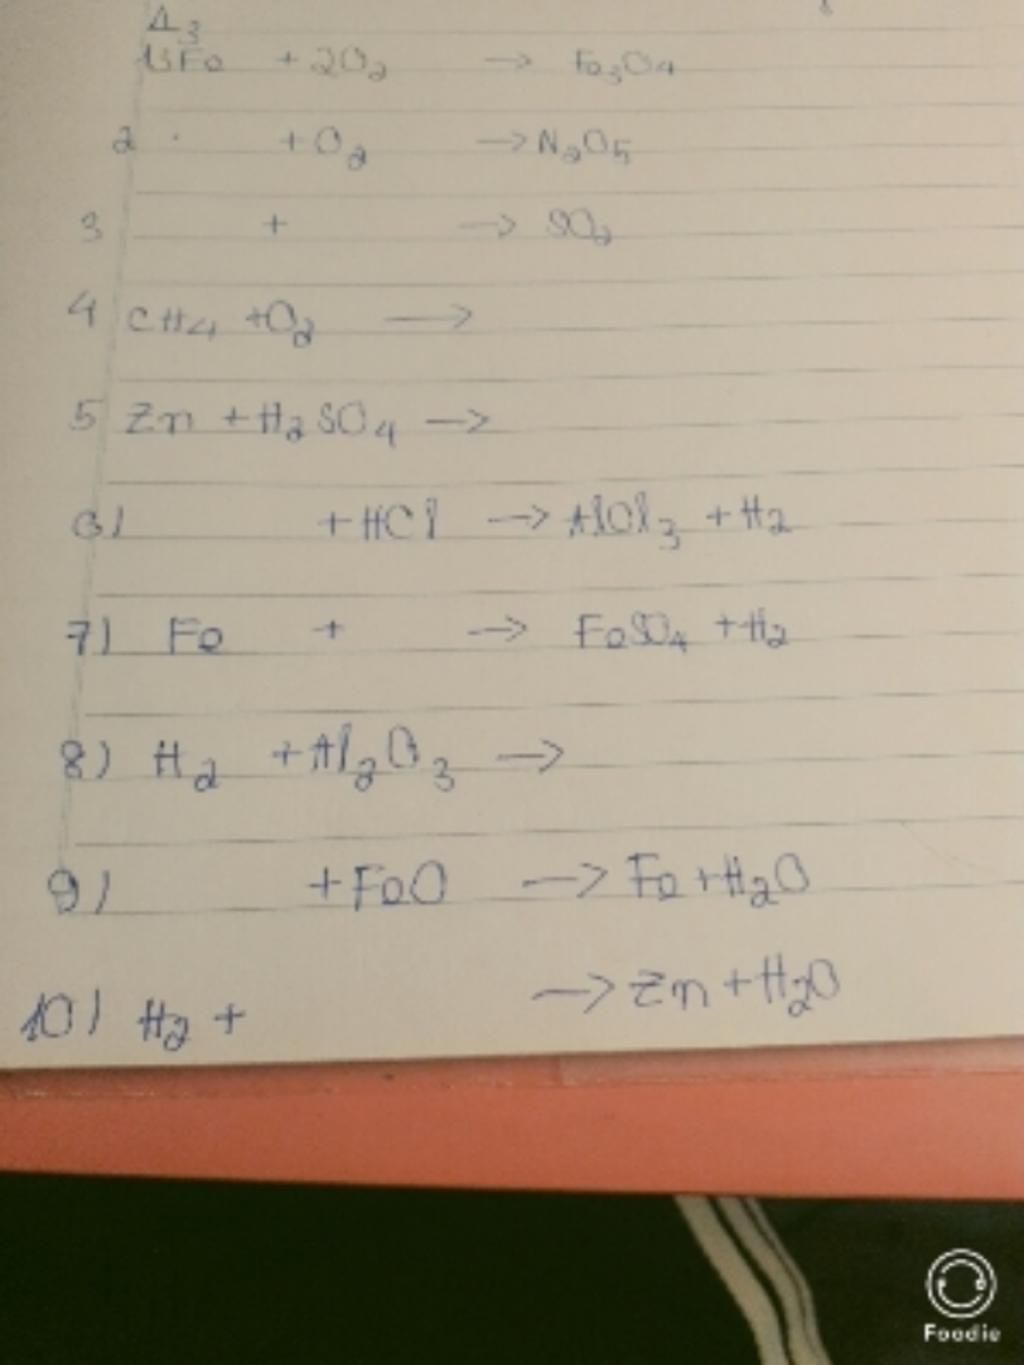 3
1) 3Fe + 2O2 → Fe3O4
2 + O2 → N2O5
3 + → SO2
4 CH4 + O2 →
5 Zn + H2SO4 →
6) + HCl → AlCl3 + H2
7) Fe + → FeSO4 + H2
8) H2 + Al2O3 →
9) + FeO → Fe + H2O
10) H2 + → Zn + H2O
Foodie